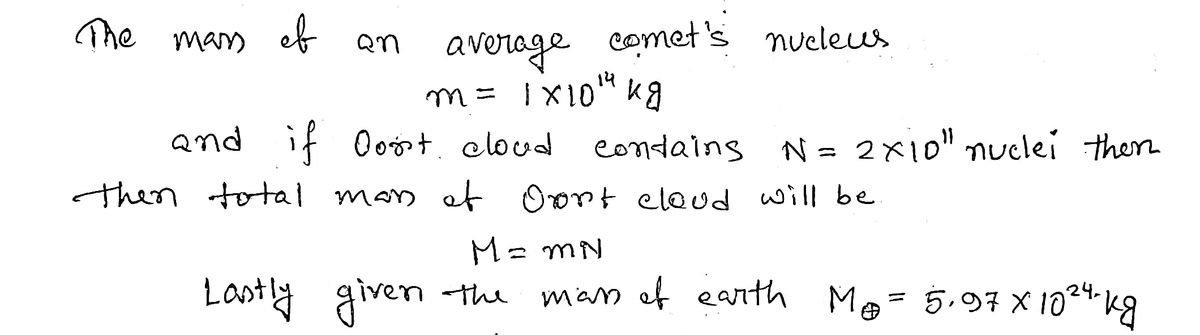 The mass of an average comet's nucleus
m = 1×10¹⁴ kg
and if Oort cloud contains N = 2×10¹¹ nuclei then
then total mass of Oort cloud will be
M = mN
Lastly given the mass of earth M⊕ = 5.97 × 10²⁴ kg